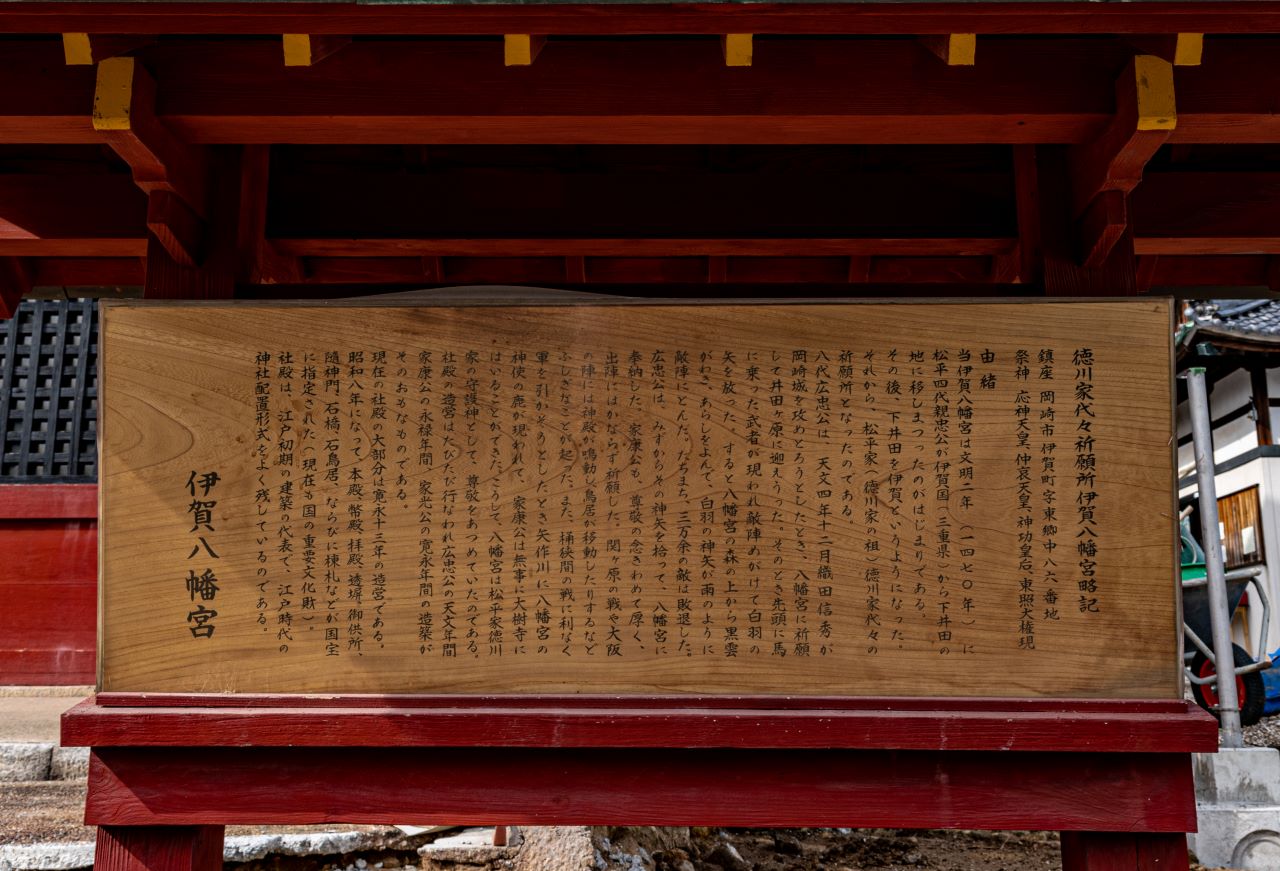 徳川家代々祈願所伊賀八幡宮略記
鎮座 岡崎市伊賀町字東郷中八六番地
祭神 応神天皇、仲哀天皇、神功皇后、東照大権現
由緒
当伊賀八幡宮は文明二年(一四七〇年)に
松平四代親忠公が伊賀国(三重県)から下井田の
地に移しまつったのがはじまりである。
その後、下井田を伊賀というようになった。
それから、松平家(徳川家の祖)徳川家代々の
祈願所となったのである。
八代広忠公は、天文四年十二月織田信秀が
岡崎城を攻めとろうとしたとき、八幡宮に祈願
して井田ヶ原に迎えうった。そのとき先頭に馬
に乗った武者が現われ敵陣めがけて白羽の
矢を放った。すると八幡宮の森の上から黒雲
がわき、あらしをよんで、白羽の神矢が雨のように
敵陣にとんた。たちまち、三万余の敵は敗退した。
広忠公は、みずからその神矢を拾って、八幡宮に
奉納した。家康公も、尊敬の念きわめて厚く、
出陣にはかならず祈願した。関ヶ原の戦や大阪
の陣には神殿が鳴動し鳥居が移動したりするなど
ふしぎなことが起った。また、桶狭間の戦に利なく
軍を引かそうとしたとき矢作川に八幡宮の
神使の鹿が現われて、家康公は無事に大樹寺に
はいることができた。こうして、八幡宮は松平家徳川
家の守護神として、尊敬をあつめていたのである。
社殿の造営はたびたび行なわれ広忠公の天文年間
家康公の永禄年間、家光公の寛永年間の造築が
そのおもなものである。
現在の社殿の大部分は寛永十三年の造営である。
昭和八年になって、本殿、幣殿、拝殿、透塀、御供所、
随神門、石橋、石鳥居、ならびに棟札などが国宝
に指定された(現在も国の重要文化財)。
社殿は、江戸初期の建築の代表で、江戸時代の
神社配置形式をよく残しているのである。
伊賀八幡宮